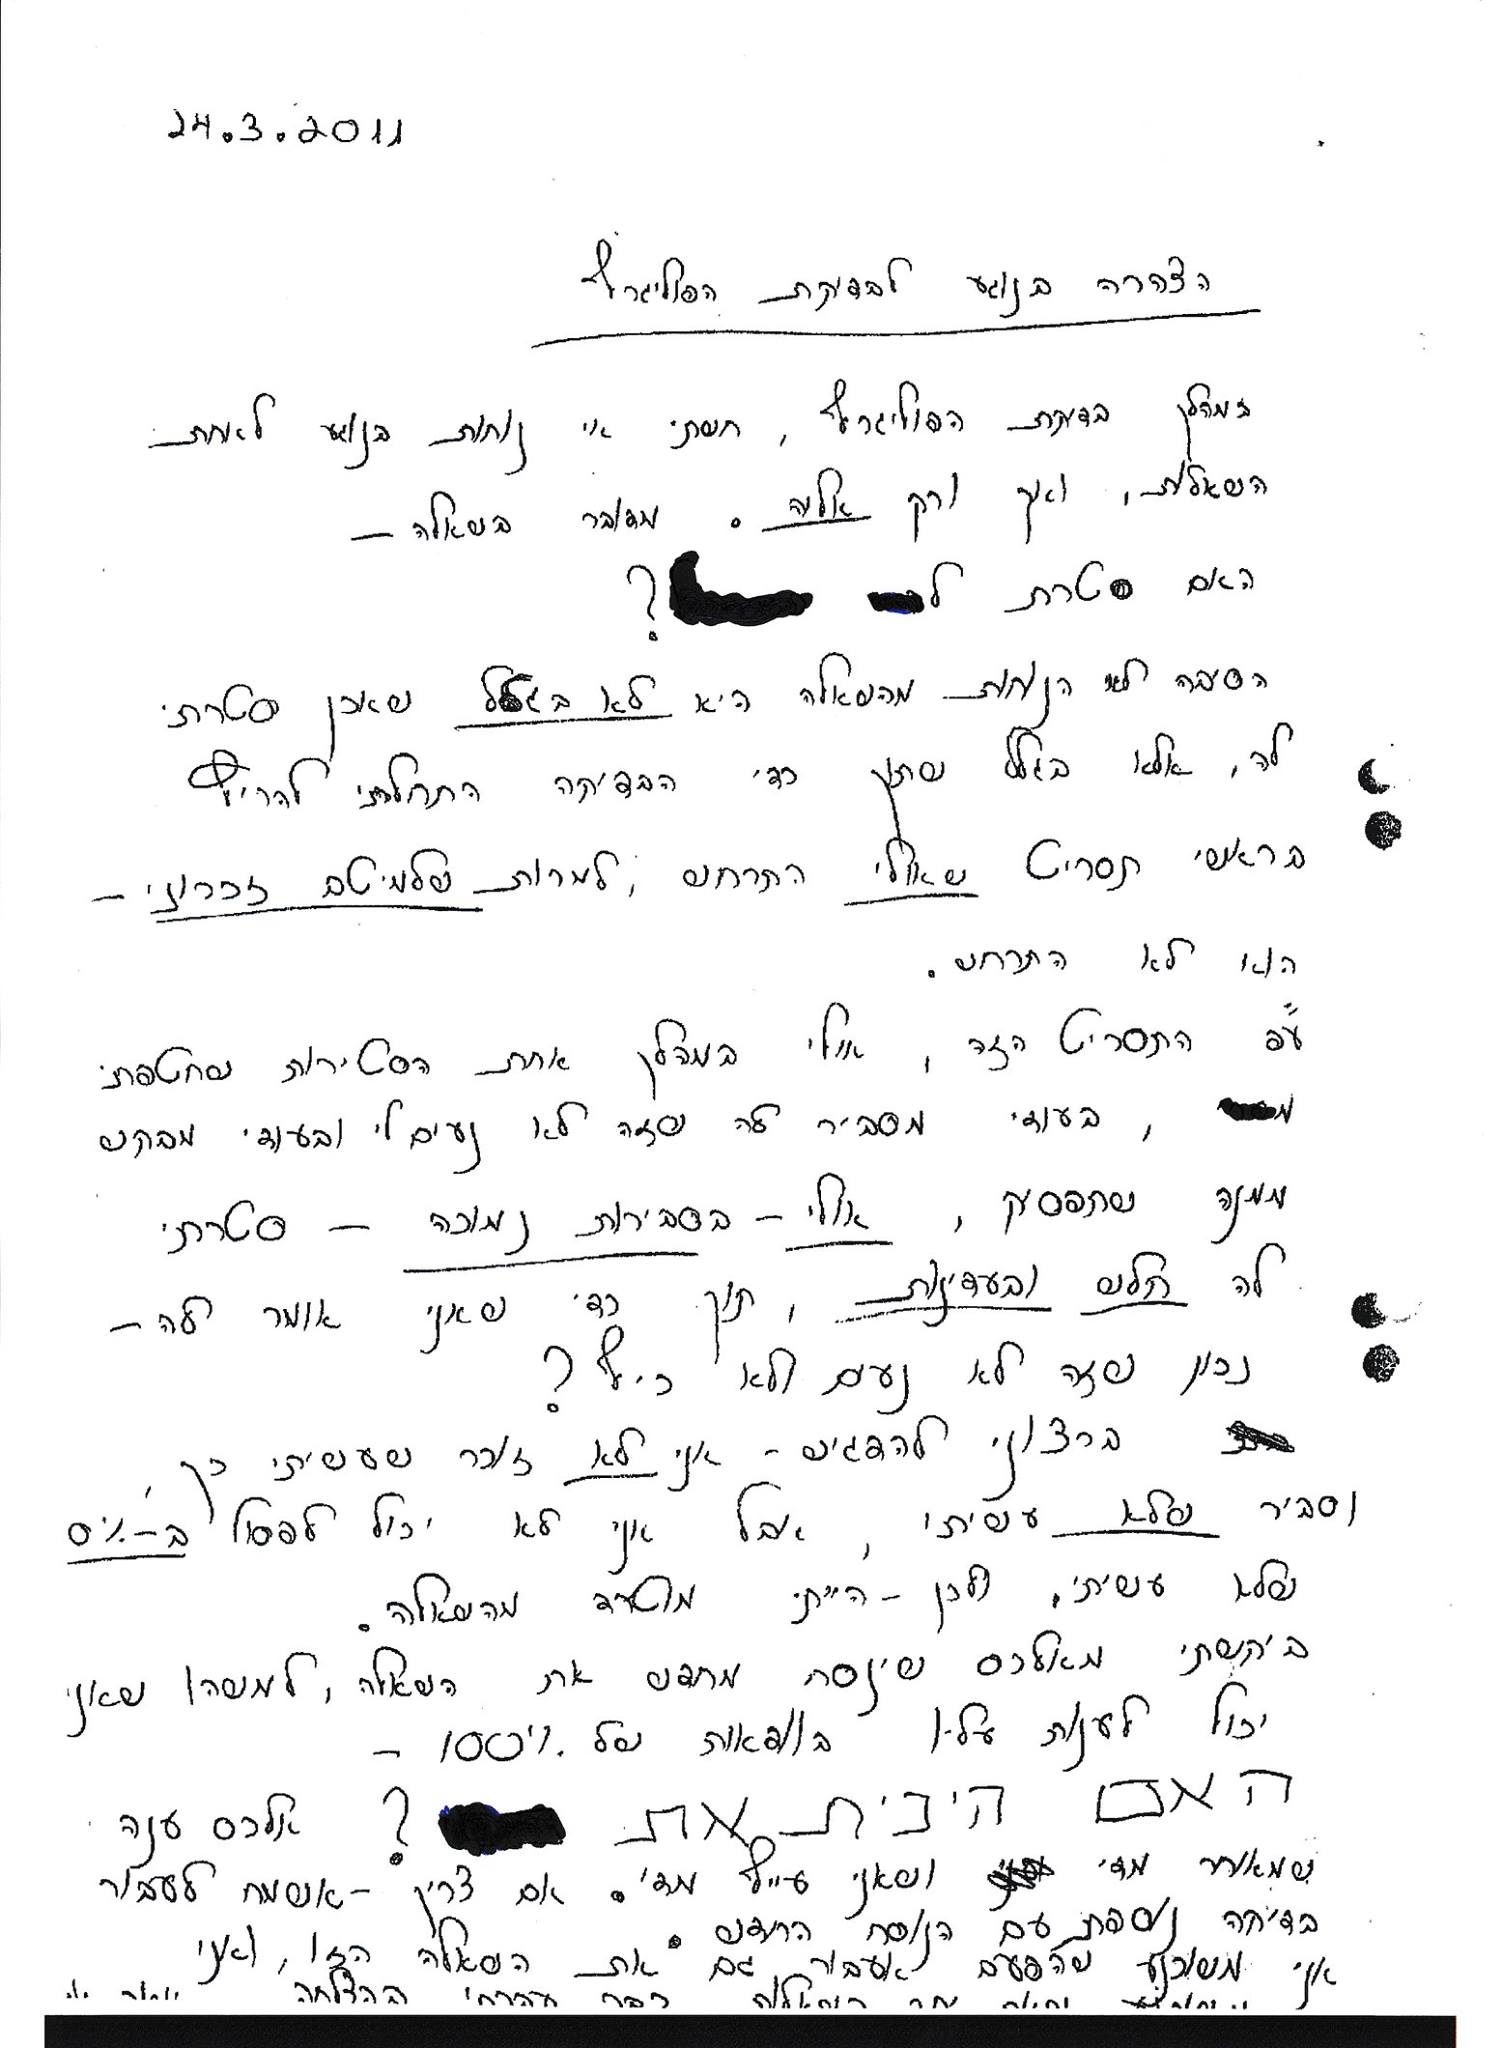 24.3.2011
הצהרה בנוגע לבדיקת הפוליגרף
במהלך בדיקת הפוליגרף, חשתי אי נוחות בנוגע לאחת
השאלות, ואך ורק אליה. מדובר בשאלה –
האם סטרת ל ?
הסיבה לאי הנוחות מהשאלה היא לא בגלל שאכן סטרתי
לה, אלא בגלל שתוך כדי הבדיקה התחלתי להריץ
בראשי תסריט שאולי התרחש, למרות שלמיטב זכרוני –
הוא לא התרחש.
ע"פ התסריט הזה, אולי במהלך אחת הסטירות שחטפתי
מ , בעודי מסביר לה שזה לא נעים לי ובעודי מבקש
ממנה שתפסיק, אולי – בסבירות נמוכה – סטרתי
לה חלש ובעדינות, תוך כדי שאני אומר לה –
נכון שזה לא נעים ולא כיף?
ברצוני להדגיש – אני לא זוכר שעשיתי כך,
וסביר שלא עשיתי, אבל אני לא יכול לפסול ב-%
שלא עשיתי, ולכן – הייתי מוטרד מהשאלה.
ביקשתי מאלכס שינסח מחדש את השאלה, למשהו שאני
יכול לענות עליו בוודאות של 100% –
האם היכית את ? אלכס ענה
שמאוחר מדי ושאני עייף מדי. אם צריך – אשמח לעבור
בדיקה נוספת עם הנוסח החדש.
אני משוכנע שהפעם אעבור גם את השאלה הזו, ואני